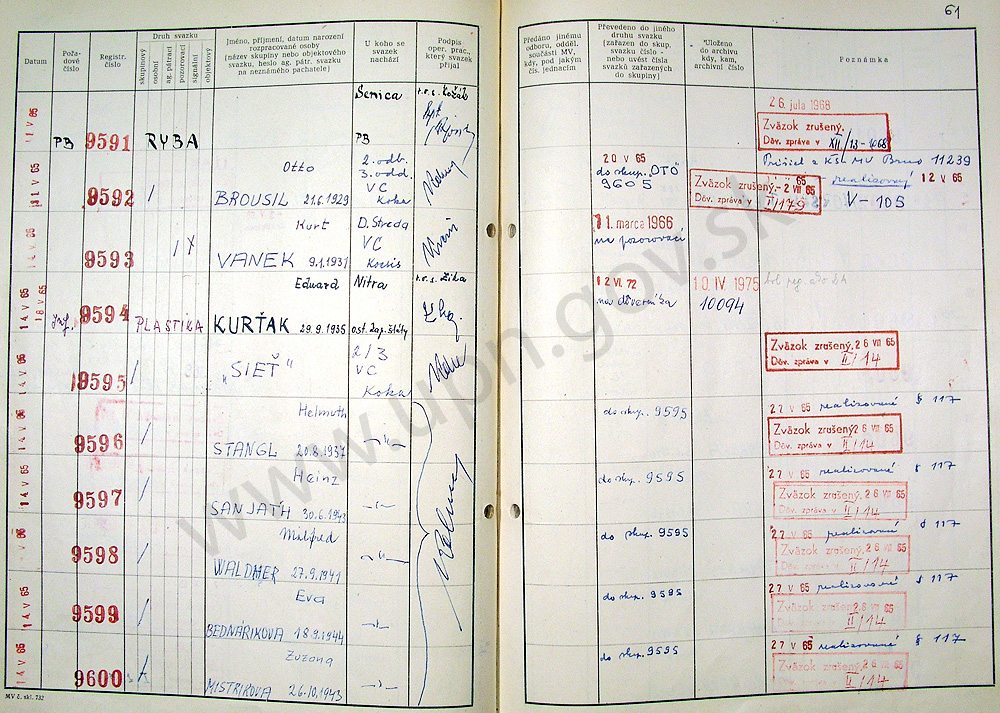 61
Datum
Pořadové číslo
Registr. číslo
Druh svazku
skupinový
osobní
ag. pátrací
pozorovací
signální
objektový
Jméno, příjmení, datum narození
rozpracované osoby
(název skupiny nebo objektového
svazku, heslo ag. pátr. svazku
na neznámého pachatele)
U koho se
svazek
nachází
Podpis
oper. prac.,
který svazek
přijal
Předáno jinému
odboru, odděl.
součásti MV,
kdy, pod jakým
čís. jednacím
Převedeno do jiného
druhu svazku
(zařazen do skup.
svazku číslo -
nebo uvést čísla
svazků zařazených
do skupiny)
"Uloženo
do archivu
kdy, kam,
archivní číslo
Poznámka
PB 9591 RYBA
Senica
PB
26. júla 1968
Zväzok zrušený.
Dôv. zpráva v XII/13-1068
9592
Otto
BROUSIL 21.6.1929
2. odb.
3. odd.
VC
Koka
20 V 65
do skup. "OTO"
9605
Prišiel z KS MV Brno 11239
realizovaný 12 V 65
Zväzok zrušený. - 2 VII 65
Dôv. zpráva v I/179
V-105
9593
Kurt
VANEK 9.1.1931
D. Streda
VC
Kocsis
11. marca 1966
na pozorovací
14 V 65
18 V 65
9594 PLASTIKA
Eduard
KURŤAK 29.9.1935
Nitra
ost. zap. štáty
12 VI. 72
na dôverníka
10 IV 1975
10094
9595
"SIEŤ"
2/3
VC
Koka
Zväzok zrušený. 26 VII 65
Dôv. zpráva v II/14
14 V 65
9596
Helmuth
STANGL 20.8.1937
do skup. 9595
27 V 65 realizované § 117
Zväzok zrušený 26 VII 65
Dôv. zpráva v II/14
14 V 65
9597
Heinz
SANJATH 30.6.1943
do skup. 9595
27 V 65 realizované § 117
Zväzok zrušený. 26 VII 65
Dôv. zpráva v II/14
14 V 65
9598
Milfred
WALDHER 27.9.1941
do skup. 9595
27 V 65 realizované § 117
Zväzok zrušený. 26 VII 65
Dôv. zpráva v II/14
14 V 65
9599
Eva
BEDNÁRIKOVÁ 18.9.1944
do skup. 9595
27 V 65 realizované § 117
Zväzok zrušený. 26 VII 65
Dôv. zpráva v II/14
14 V 65
9600
Zuzana
MISTRÍKOVÁ 26.10.1943
do skup. 9595
27 V 65 realizované § 117
Zväzok zrušený. 26 VII 65
Dôv. zpráva v II/14
MV č. skl. 732
www.upn.gov.sk